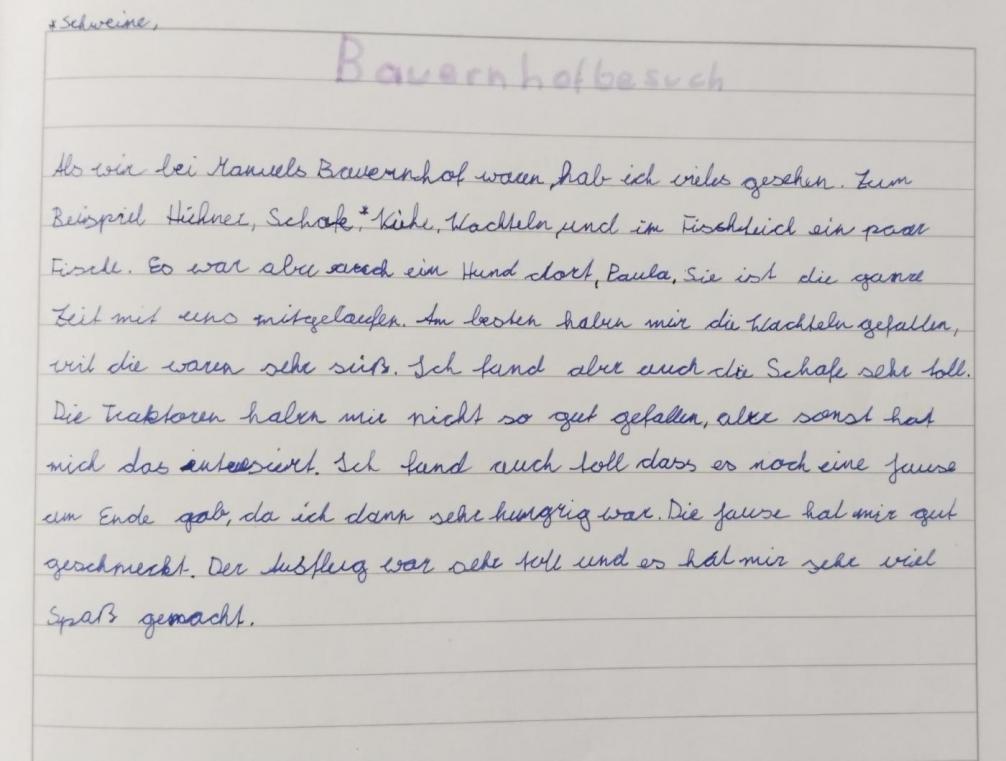 *Schweine,
Bauernhofbesuch
Als wir bei Manuels Bauernhof waren, hab ich vieles gesehen. Zum
Beispiel Hühner, Schafe,* Kühe, Wachteln und im Fischteich ein paar
Fische. Es war aber auch ein Hund dort, Paula. Sie ist die ganze
Zeit mit uns mitgelaufen. Am besten haben mir die Wachteln gefallen,
weil die waren sehr süß. Ich fand aber auch die Schafe sehr toll.
Die Traktoren haben mir nicht so gut gefallen, aber sonst hat
mich das interessiert. Ich fand auch toll dass es noch eine Jause
am Ende gab, da ich dann sehr hungrig war. Die Jause hat mir gut
geschmeckt. Der Ausflug war sehr toll und es hat mir sehr viel
Spaß gemacht.